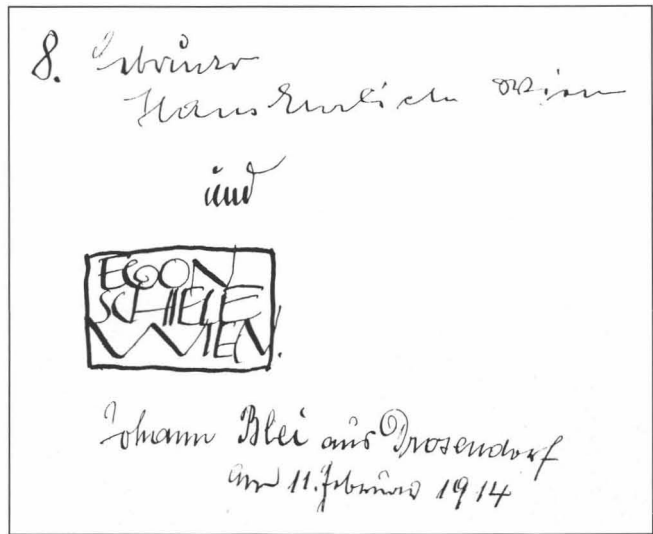 8. Februar
Hans Wien
und
EGON
SCHIELE
WIEN.
Johann Blei aus Drosendorf
am 11. Februar 1914